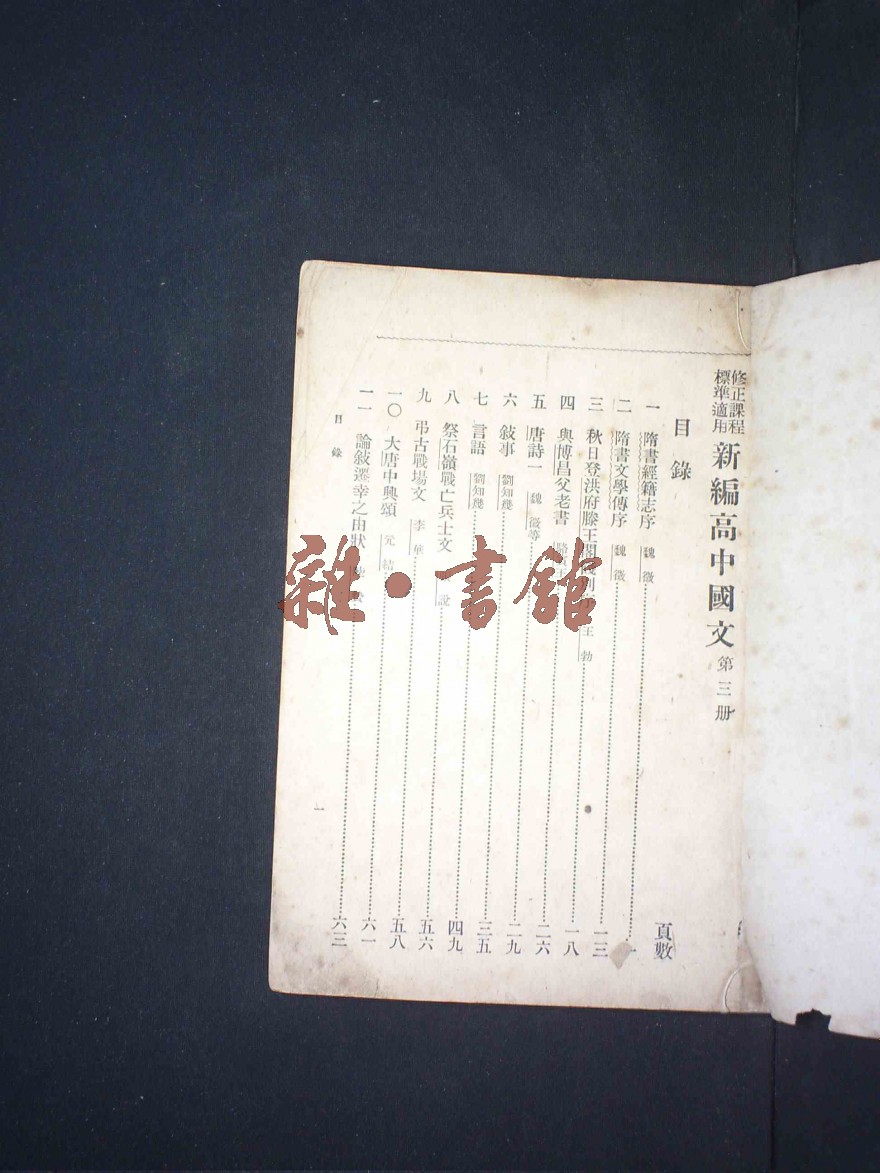 修正課程
標準適用
新編高中國文 第三册
目錄
頁數
一 隋書經籍志序 魏徵 一
二 隋書文學傳序 魏徵 一三
三 秋日登洪府滕王閣 王勃 一八
四 與博昌父老書 駱 二六
五 唐詩一 魏徵等 二九
六 敍事 劉知幾 三五
七 言語 劉知幾 四九
八 祭石嶺戰亡兵士文 說 五六
九 弔古戰場文 李華 五八
一〇 大唐中興頌 元結 六一
一一 論敍遷幸之由狀 六三
目錄
一
雜·書館